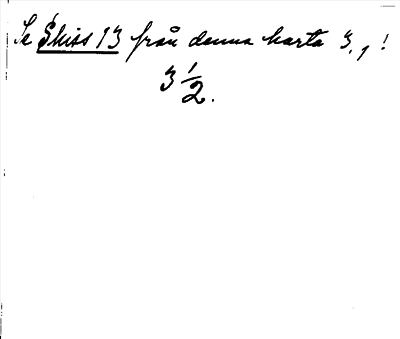 Se Skiss 13 från denna karta 3,1!
3 1/2.